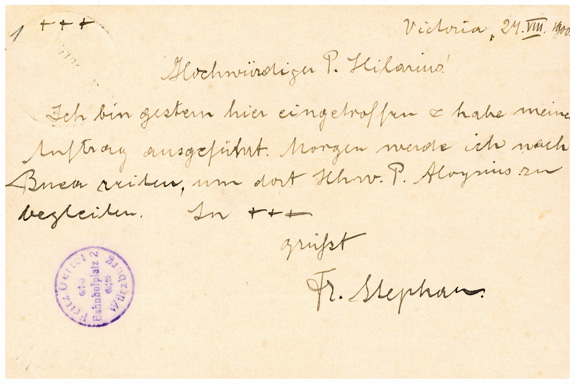 +++
Victoria, 24. VIII. 1900.
Hochwürdiger P. Hilarius!
Ich bin gestern hier eingetroffen & habe meinen
Auftrag ausgeführt. Morgen werde ich nach
Buea reiten, um dort Hhw. P. Aloysius zu
begleiten. In +++
grüßt
Fr. Stephan.
Fritz Oertel
Bahnhofplatz 2
Würzburg